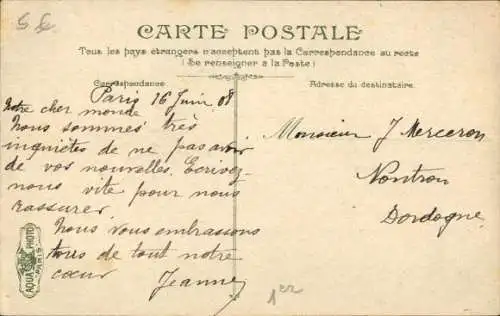 CARTE POSTALE
Tous les pays étrangers n'acceptent pas la Correspondance au recto
(Se renseigner à la Poste)
Correspondance
Adresse du destinataire.
Paris 16 Juin 08
Notre cher monde
Nous sommes très
inquiètes de ne pas avoir
de vos nouvelles. Ecrivez-
nous vite pour nous
rassurer.
Nous vous embrassons
tous de tout notre
cœur Jeanne
Monsieur J Merceron
Nontron
Dordogne
AQUA PHOTO
PARIS
1er